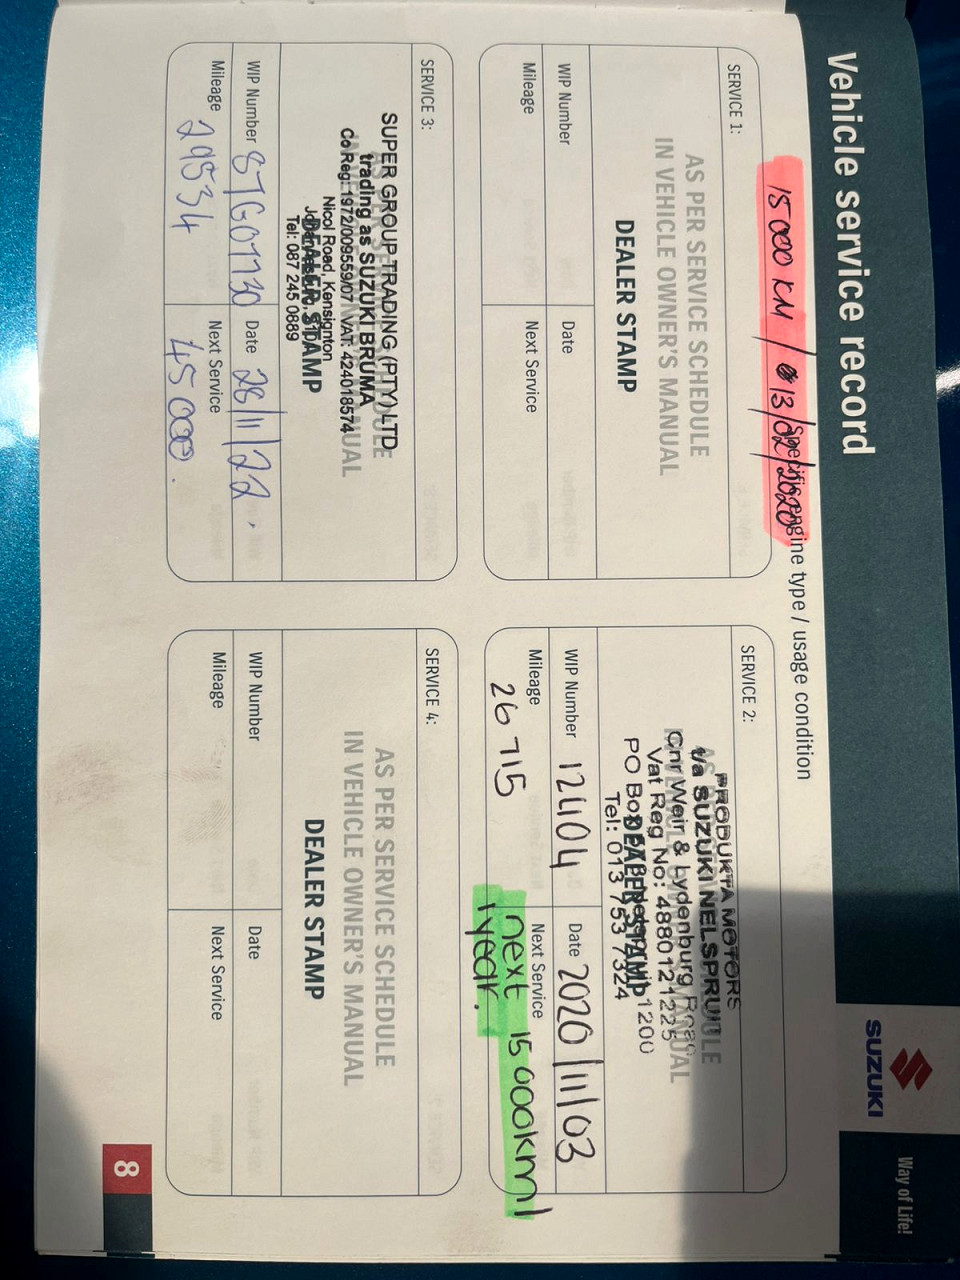 Vehicle service record
SUZUKI
Way of Life!
Specific engine type / usage condition
15 000 KM / 13/02/2020
SERVICE 1:
AS PER SERVICE SCHEDULE
IN VEHICLE OWNER'S MANUAL
DEALER STAMP
WIP Number
Date
Mileage
Next Service
SERVICE 2:
AS PER SERVICE SCHEDULE
IN VEHICLE OWNER'S MANUAL
DEALER STAMP
PRODUKTA MOTORS
t/a SUZUKI NELSPRUIT
Cnr Weir & Lydenburg Road
Vat Reg No: 4880121225
PO Box Nelspruit 1200
Tel: 013 753 7324
WIP Number 121104
Date 2020/11/03
Mileage 26 715
Next Service
next 15 000km/
1 year.
SERVICE 3:
AS PER SERVICE SCHEDULE
IN VEHICLE OWNER'S MANUAL
DEALER STAMP
SUPER GROUP TRADING (PTY) LTD
trading as SUZUKI BRUMA
Co Reg: 1972/009559/07 VAT: 424018574
Nicol Road, Kensignton
Tel: 087 245 0889
WIP Number STG01130
Date 28/11/22.
Mileage 29534
Next Service 45 000.
SERVICE 4:
AS PER SERVICE SCHEDULE
IN VEHICLE OWNER'S MANUAL
DEALER STAMP
WIP Number
Date
Mileage
Next Service
8